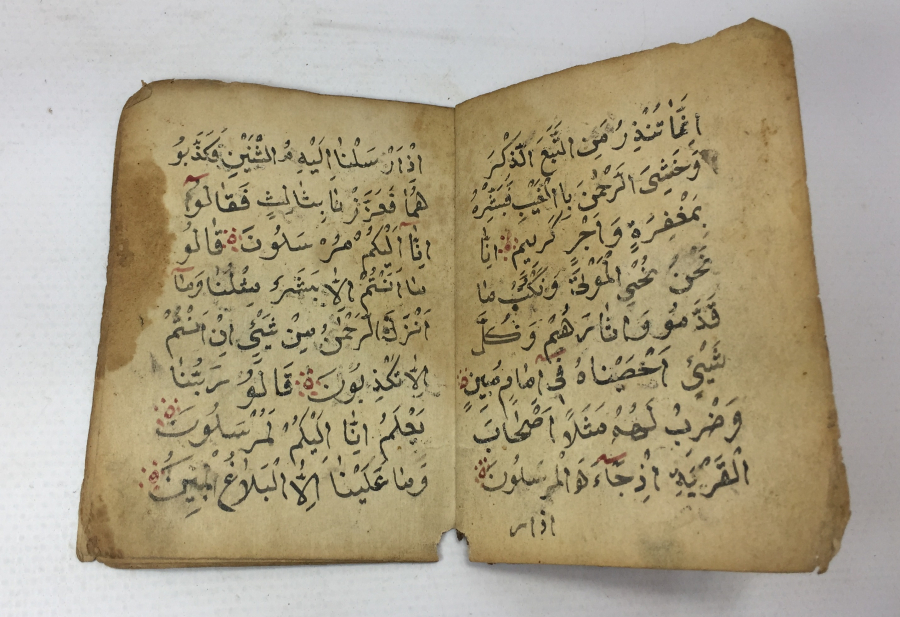 انَّمَا تُنْذِرُ مَنِ اتَّبَعَ الذِّكْرَ
وَخَشِىَ الرَّحْمٰنَ بِاالْغَيْبِ فَبَشِّرْهُ
بِمَغْفِرَةٍ وَاَجْرٍ كَرِيمٍ اِنَّا
نَحْنُ نُحْيِ الْمَوْتٰى وَنَكْتُبُ مَا
قَدَّمُوو وَاٰثَارَهُمْ وَكُلَّ
شَيْئٍ اَحْصَيْنَاهُ فٖى اِمَامٍ مُبٖينٍ
وَضْرِبْ لَهُمْ مَثَلًا اَصْحَابَ
الْقَرْيَةِ اِذْ جَٓاءَهَ الْمُرْسَلُونَ
اذار
اِذْاَرْسَلْنَا اِلَيْهِمُ اثْنَيْنِ فَكَذَّبُو
هُمَا فَعَزَّزْنَا بِثَالِثٍ فَقَالُٓو
اِنَّٓا اِلَيْكُمْ مُرْسَلُونَ قَالُو
مَا اَنْتُمْ اِلَّا بَشَرٌ مِثْلُنَا وَمَٓا
اَنْزَلَ الرَّحْمٰنُ مِنْ شَيْئٍ اِنْ اَنْتُمْ
اِلَّا تَكْذِبُونَ قَالُو رَبُّنَا
يَعْلَمُ اِنَّا اِلَيْكُمْ لَمُرْسَلُونَ
وَمَا عَلَيْنَا اِلَّا الْبَلَاغُ الْمُبٖينُ